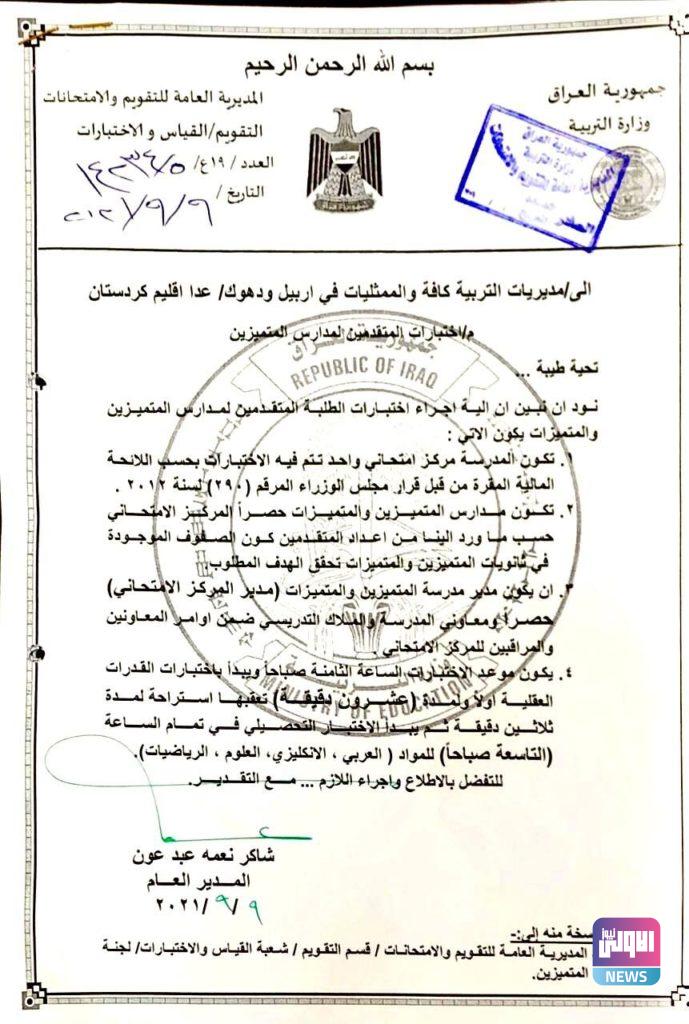 بسم الله الرحمن الرحيم
جمهورية العراق
وزارة التربية
المديرية العامة للتقويم والامتحانات
التقويم/القياس و الاختبارات
العدد / ١٩ع/
التاريخ / ٢٠٢١/٩/٩
جمهورية العراق
وزارة التربية
الى/مديريات التربية كافة والممثليات في اربيل ودهوك/ عدا اقليم كردستان
م/اختبارات المتقدمين لمدارس المتميزين
جمهورية العراق
REPUBLIC OF IRAQ
تحية طيبة ...
نود ان نبين ان الية اجراء اختبارات الطلبة المتقدمين لمدارس المتميزين
والمتميزات يكون الاتي :
١. تكون المدرسة مركز امتحاني واحد تتم فيه الاختبارات بحسب اللائحة
المالية المقرة من قبل قرار مجلس الوزراء المرقم (٢٩٠) لسنة ٢٠١٢ .
٢. تكون مدارس المتميزين والمتميزات حصراً المركز الامتحاني
حسب ما ورد الينا من اعداد المتقدمين كون الصفوف الموجودة
في ثانويات المتميزين والمتميزات تحقق الهدف المطلوب.
٣. ان يكون مدير مدرسة المتميزين والمتميزات (مدير المركز الامتحاني)
حصراً ومعاوني المدرسة والملاك التدريسي ضمن اوامر المعاونين
والمراقبين للمركز الامتحاني.
٤. يكون موعد الاختبارات الساعة الثامنة صباحاً ويبدأ باختبارات القدرات
العقلية اولاً ولمدة (عشرون دقيقة) تعقبها استراحة لمدة
ثلاثين دقيقة ثم يبدأ الاختبار التحصيلي في تمام الساعة
(التاسعة صباحاً) للمواد ( العربي ، الانكليزي، العلوم ، الرياضيات).
للتفضل بالاطلاع واجراء اللازم ... مع التقدير.
MINISTRY OF EDUCATION
شاكر نعمه عبد عون
المدير العام
٢٠٢١/٩/٩
نسخة منه إلى:-
المديرية العامة للتقويم والامتحانات / قسم التقويم / شعبة القياس والاختبارات/ لجنة
المتميزين.
الاولى نيوز
NEWS